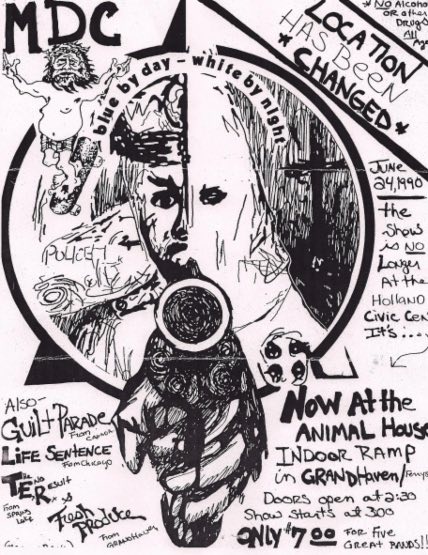 MDC
* NO Alcohol
OR other
Drugs
All
LOCATION
HAS BEEN
* CHANGED *
blue by day - white by night
POLICE
JUNE
24, 1990
the
Show
is NO
Longer
At the
HOLLAND
CIVIC CEN
It's....
ALSO-
GUILT PARADE
From CANADA
LIFE SENTENCE
From Chicago
The END Result
From SPRING Lake
Fresh
PRODUCE
From GRAND HAVEN
NOW At the
ANIMAL House
INDOOR RAMP
in GRAND HAVEN/
Doors open at 2:30
Show starts at 300
ONLY $7.00 FOR FIVE
GREAT BANDS!!